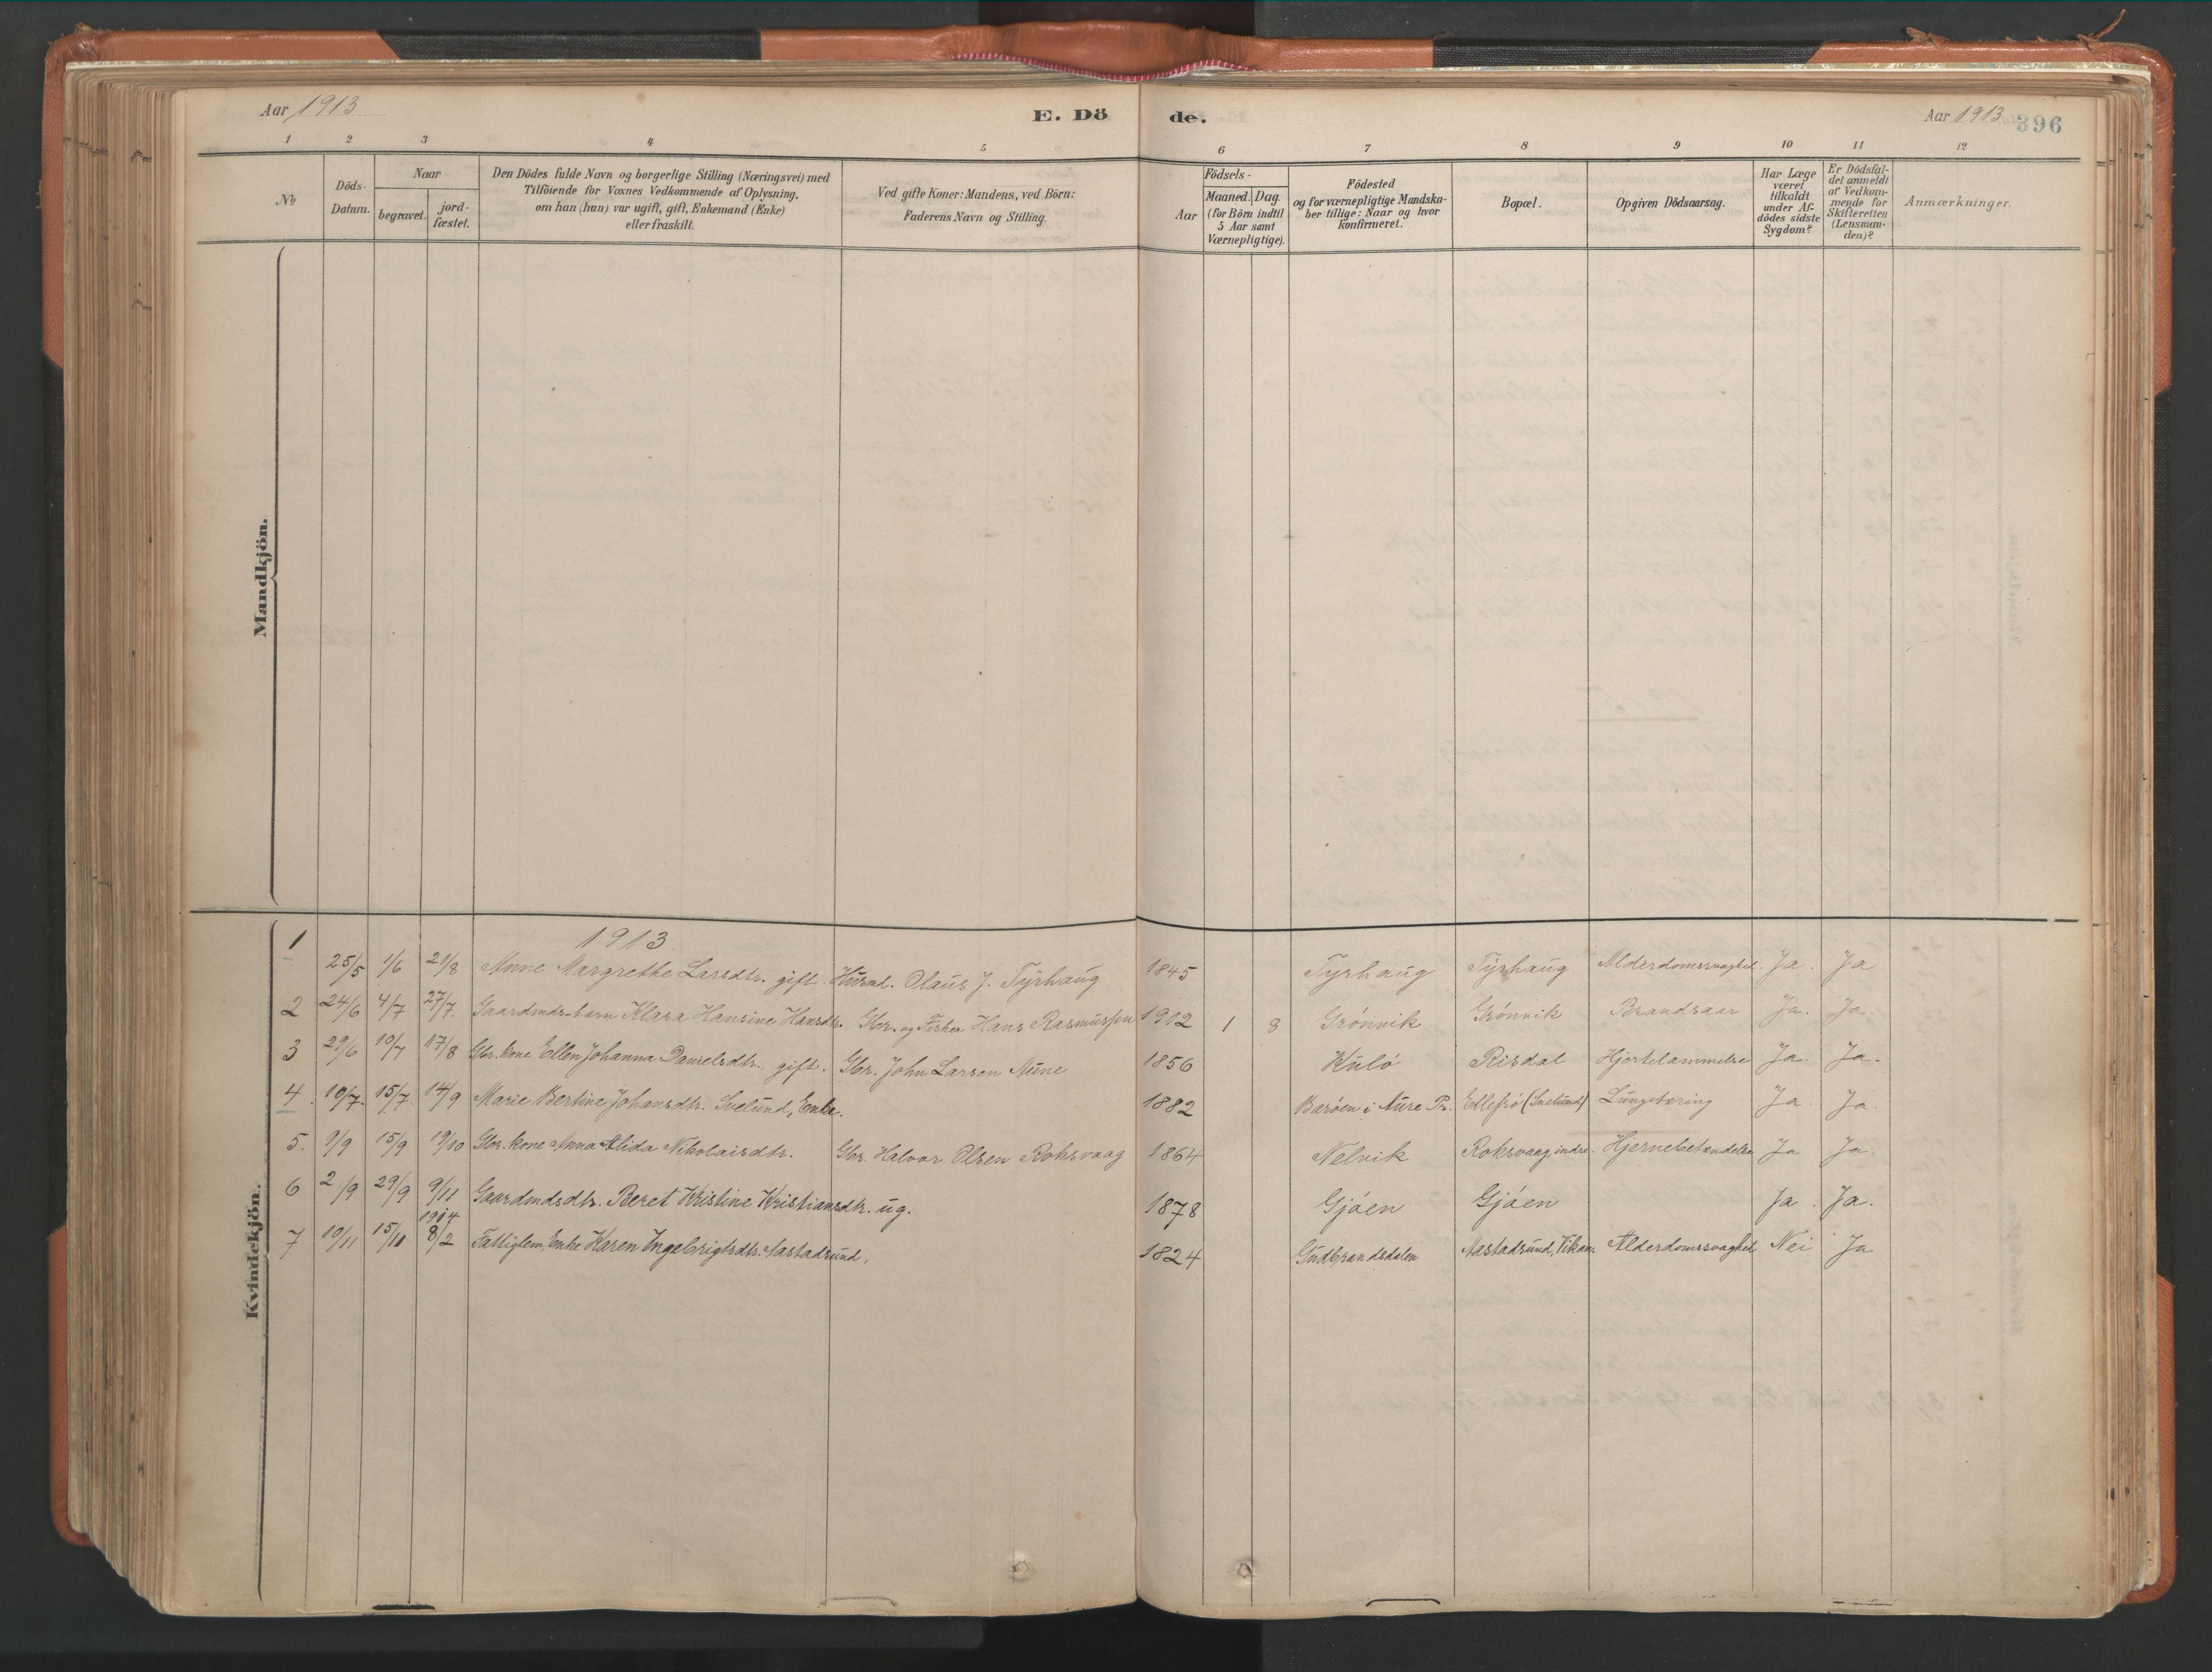 Aar 1913
E. Dö
de.
Aar 1913
396
1 2 3 4 5 6 7 8 9 10 11 12
№
Döds-
Datum.
Naar
begravet.
jord-
fæstet.
Den Dödes fulde Navn og borgerlige Stilling (Næringsvei) med
Tilföiende for Voxnes Vedkommende af Oplysning,
om han (hun) var ugift, gift, Enkemand (Enke)
eller fraskilt.
Ved gifte Koner: Mandens, ved Börn:
Faderens Navn og Stilling.
Födsels-
Aar
Maaned.
Dag.
(for Börn indtil
5 Aar samt
Værnepligtige).
Födested
og for værnepligtige Mandska-
ber tillige: Naar og hvor
konfirmeret.
Bopæl.
Opgiven Dödsaarsag.
Har Læge
været
tilkaldt
under Af-
dödes sidste
Sygdom?
Er Dödsfal-
det anmeldt
af Vedkom-
mende for
Skifteretten
(Lensman-
den)?
Anmærkninger.
Mandkjön.
Kvindekjön.
1913.
1 25/5 1/6 21/8 Anne Margrethe Larsdtr. gift. Husmd. Olaus J. Tyrhaug 1845 Tyrhaug Tyrhaug Alderdomssvaghed. Ja. Ja
2 24/6 4/7 27/7. Gaardmds-barn Klara Hansine Hansdtr. Gbr. og Fisker Hans Rasmussen 1902 1 8 Grönvik Grönvik Brandsaar Ja. Ja.
3 29/6 10/7 17/8 Gbr. kone Ellen Johanna Danielsdtr., gift. Gbr. John Larsen Aune 1856 Kulö Risdal Hjertelammelse Ja. Ja.
4. 10/7. 15/7 14/9 Marie Bertine Johansdtr. Svelund, Enke. 1882 Barøen i Aure Pr. (Svelund) Lungetæring Ja. Ja.
5. 9/9 15/9 19/10 Gbr. kone Anna Alida Nikolaisdtr. Gbr. Halvor Olsen Roksvaag 1864 Nelvik Roksvaag, indre. Hjernebetændelse Ja Ja.
6 2/9 29/9 9/11 Gaardmdsdtr. Beret Kristine Kristiansdtr. ug. 1878 Gjøen Gjøen Ja. Ja.
1914
7 10/11 15/11 8/2 Fattiglem, Enke Karen Ingebrigtsdtr. Aastadsund. 1824 Gudbrandsdalen Aastadsund, Vikan. Alderdomssvaghed Nei Ja